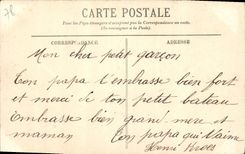 78
CARTE POSTALE
Tous les Pays étrangers n'acceptent pas la Correspondance au recto
(Se renseigner à la Poste)
CORRESPONDANCE ADRESSE
Mon cher petit garçon
Ton papa t'embrasse bien fort
et merci de ton petit bateau
Embrasse bien grand mere et
maman Ton papa qui t'aime
Henri